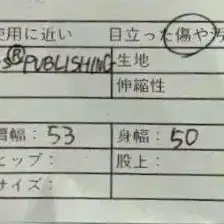 使用に近い 目立った傷や汚
S®PUBLISHING 生地
伸縮性
肩幅：53 身幅：50
ヒップ： 股上：
サイズ：